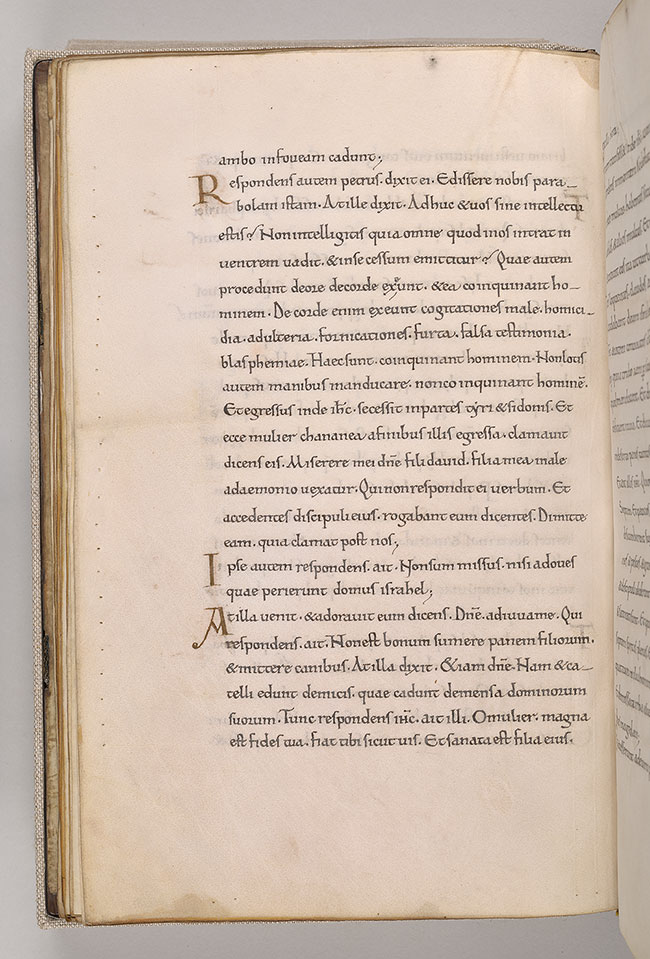 ambo infoveam cadunt;
Respondens autem petrus. dixit ei. Edissere nobis para
bolam istam. Atille dixit. Adhuc &uos sine intellectu
estis? Nonintelligitis quia omne quod inos intrat in
uentrem uadit. &inse cessum emittitur? Quae autem
procedunt deore decorde exeunt. &ea coinquinant ho
minem. De corde enim exeunt cogitationes male. homici
dia. adulteria. fornicationes. furta. falsa testimonia.
blasphemiae. Haecsunt. coinquinant hominem. Nonlotis
autem manibus manducare. nonco inquinant hominē.
Etegressus inde ihc̄. secessit inpartes tyri &sidonis. Et
ecce mulier chananea afinibus illis egressa. clamauit
dicens eis. Miserere mei dn̄e fili dauid. filia mea male
adaemonio uexatur. Qui nonrespondit ei uerbum. Et
accedentes discipuli eius. rogabant eum dicentes. Dimitte
eam. quia clamat post nos;
Ipse autem respondens. ait. Nonsum missus. nisi adoues
quae perierunt domus israhel;
Atilla uenit. &adorauit eum dicens. Dn̄e. adiuuame. Qui
respondens. ait. Nonest bonum sumere panem filiorum.
&mittere canibus. Atilla dixit. &iam dn̄e. Nam &ca
telli edunt demicis. quae cadunt demensa dominorum
suorum. Tunc respondens ihc̄. ait illi. Omulier. magna
est fides tua. fiat tibi sicut uis. Etsanata est filia eius.